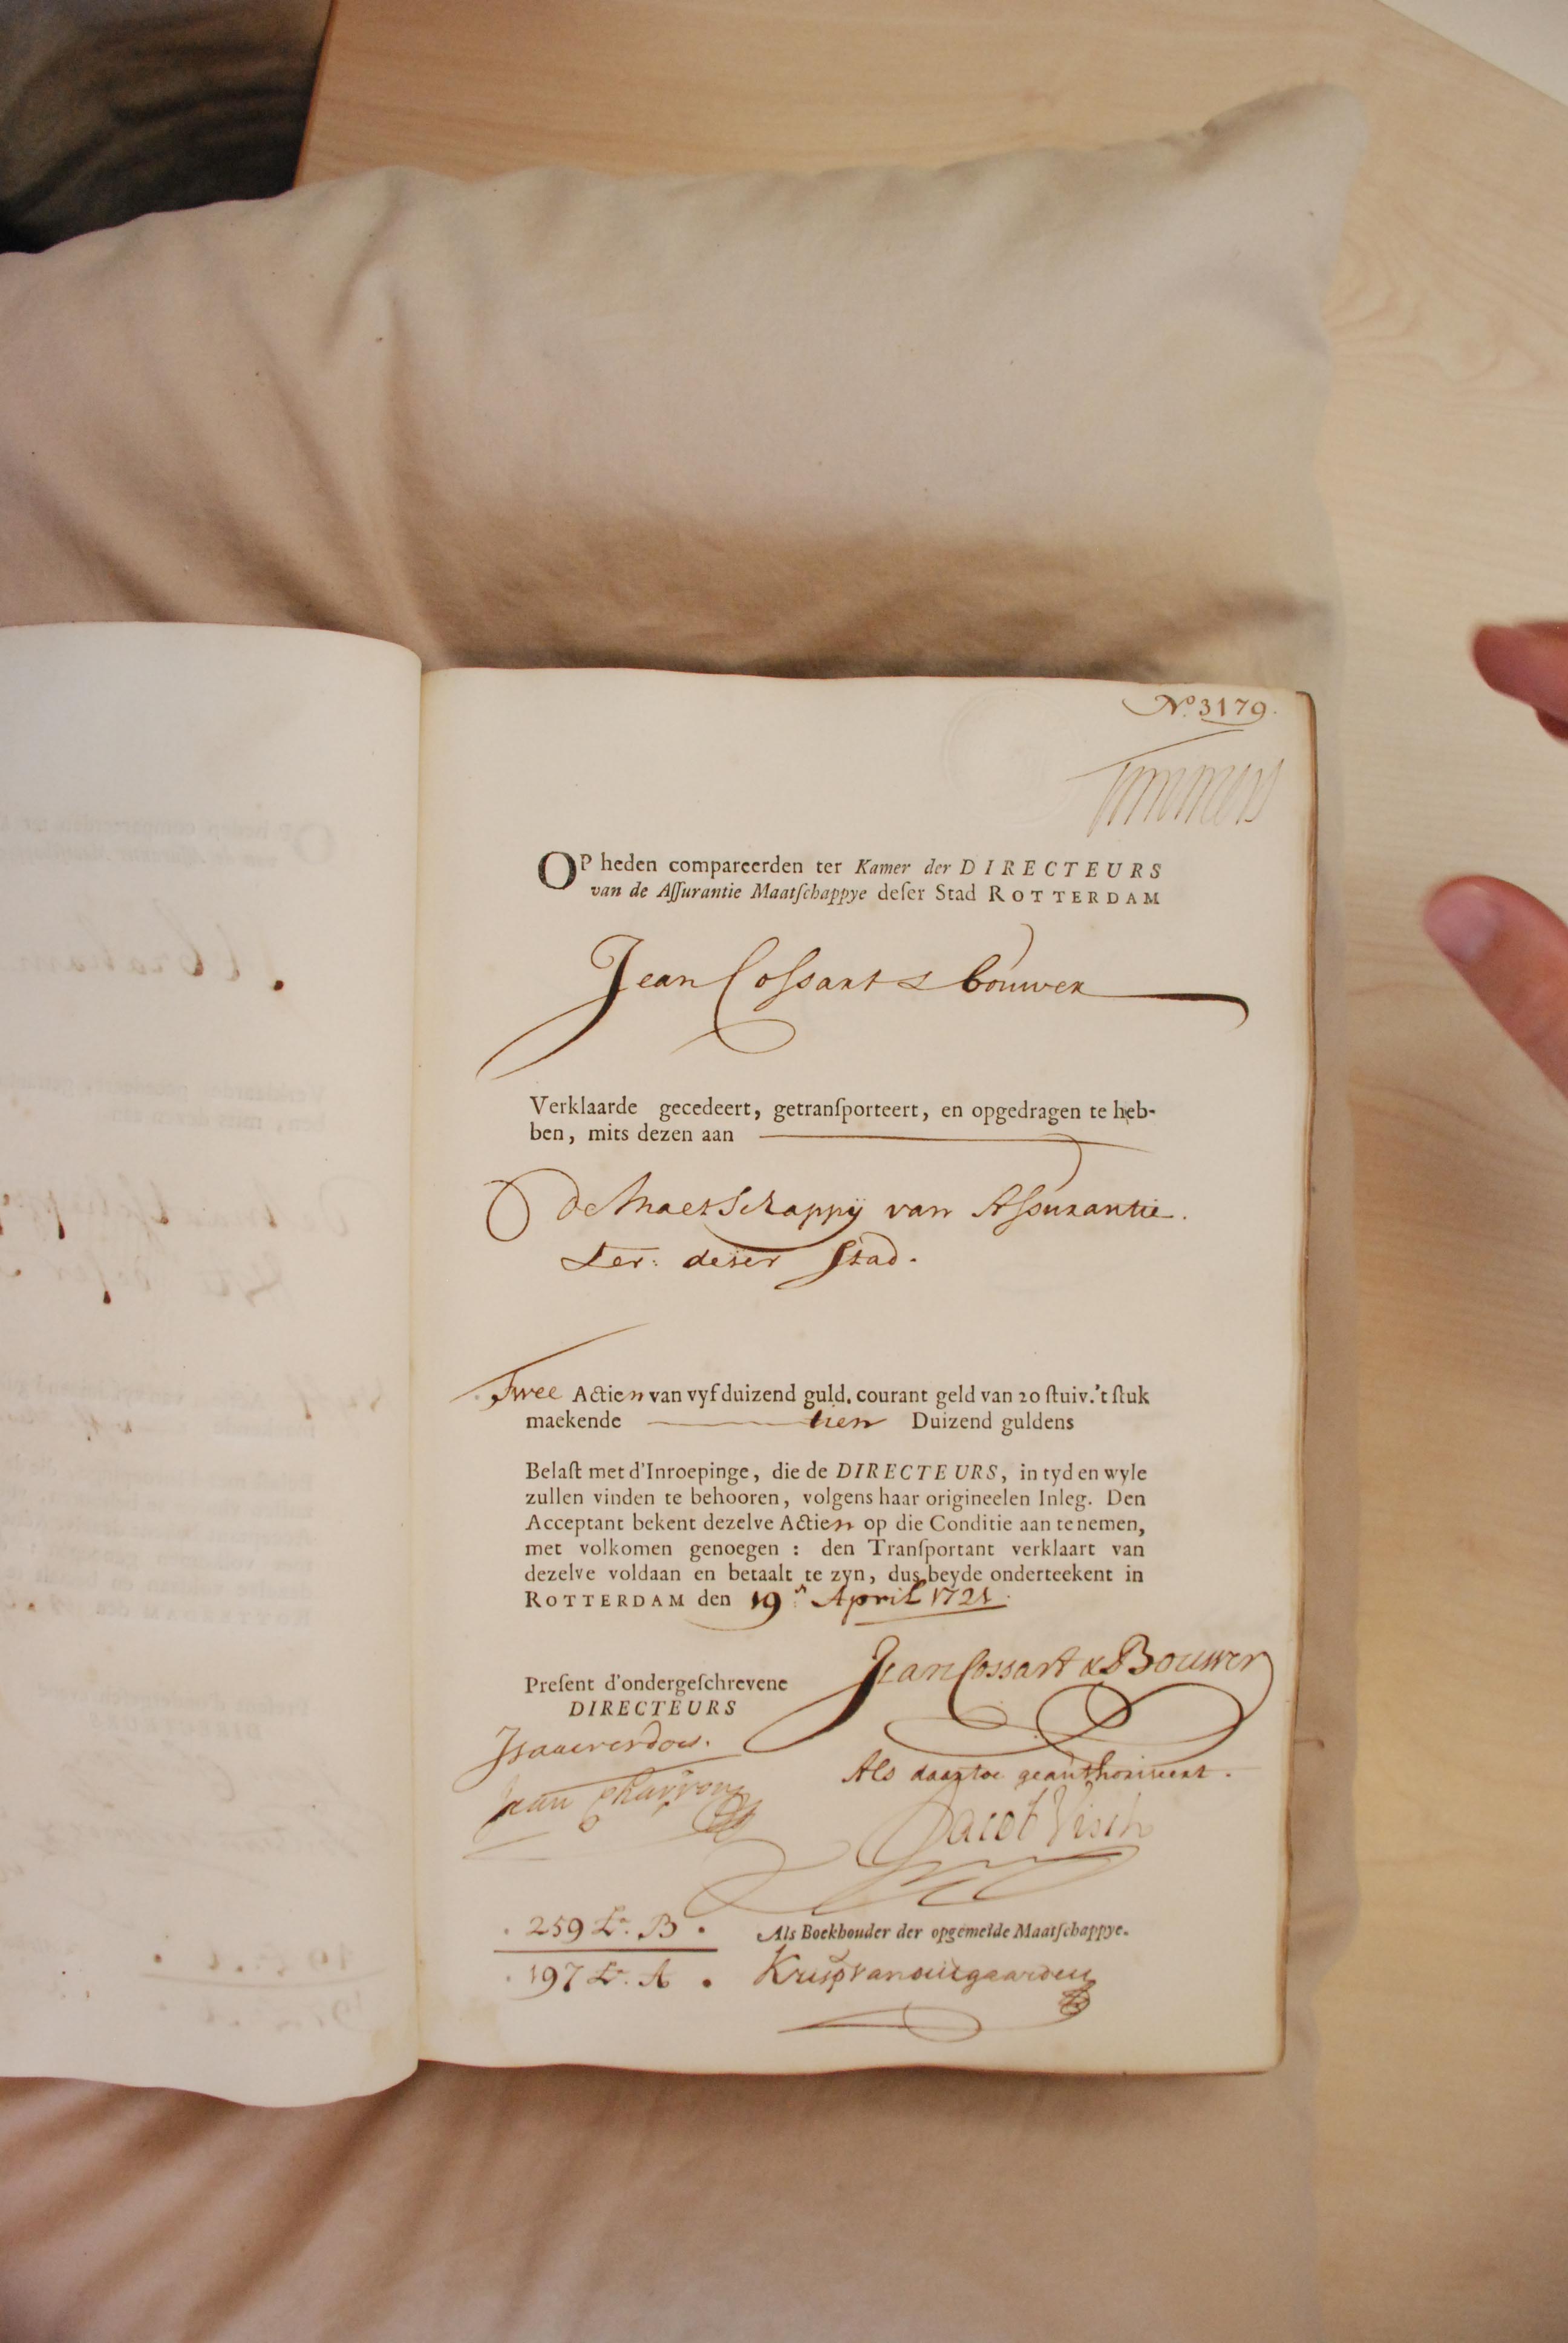 No. 3179.
Timmers
OP heden compareerden ter Kamer der DIRECTEURS
van de Aſſurantie Maatſchappye deſer Stad ROTTERDAM
Jean Coſsart & Bouwer
Verklaarde gecedeert, getranſporteert, en opgedragen te heb-
ben, mits dezen aan
De Maetschappij van Aſsurantie.
Ser: deser Stad.
Twee Actien van vyf duizend guld. courant geld van 20 ſtuiv. 't ſtuk
maekende tien Duizend guldens
Belaſt met d'Inroepinge, die de DIRECTEURS, in tyd en wyle
zullen vinden te behooren, volgens haar origineelen Inleg. Den
Acceptant bekent dezelve Actien op die Conditie aan te nemen,
met volkomen genoegen : den Tranſportant verklaart van
dezelve voldaan en betaalt te zyn, dus beyde onderteekent in
ROTTERDAM den 19n April 1721.
Jean Cossart & Bouwer
Preſent d'ondergeſchrevene
DIRECTEURS
Jean Charron
Als daartoe geauthoriseert.
Jacob Visch
259 Lr. B.
Als Boekhouder der opgemelde Maatſchappye.
197 Lr. A.